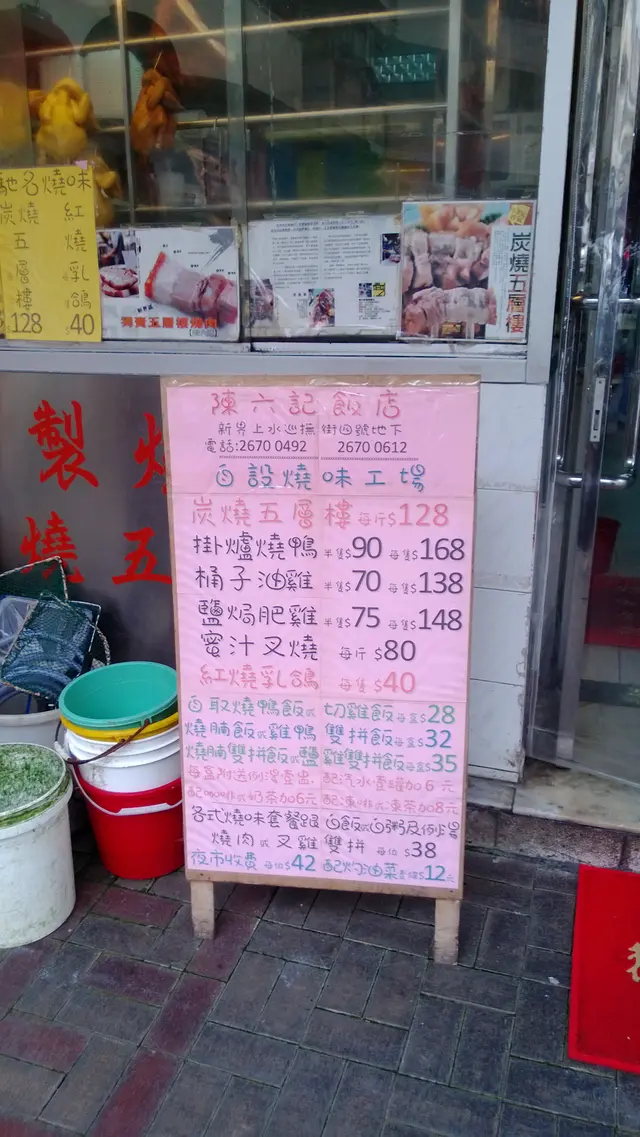 馳名燒味
炭燒五層樓128
紅燒乳鴿40
炭燒五層樓
製
燒五
陳六記飯店
新界上水巡撫街四號地下
電話:2670 0492 2670 0612
自設燒味工場
炭燒五層樓 每斤$128
掛爐燒鴨 半隻$90 每隻$168
桶子油雞 半隻$70 每隻$138
鹽焗肥雞 半隻$75 每隻$148
蜜汁叉燒 每斤 $80
紅燒乳鴿 每隻 $40
自取燒鴨飯或切雞飯每盒$28
燒腩飯或雞鴨雙拼飯每盒$32
燒腩雙拼飯或鹽雞雙拼飯每盒$35
每盒附送例湯壹出，配汽水壹罐加6元
配咖啡或奶茶加6元 配凍啡或凍茶加8元
各式燒味套餐跟白飯或白粥及例湯
燒肉或叉雞雙拼 每位$38
夜市收費 每位$42 配灼油菜壹碟$12元